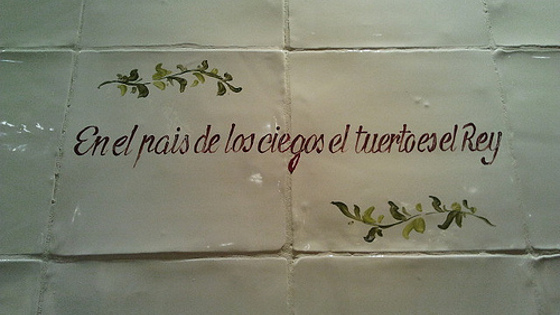 En el pais de los ciegos el tuerto es el Rey